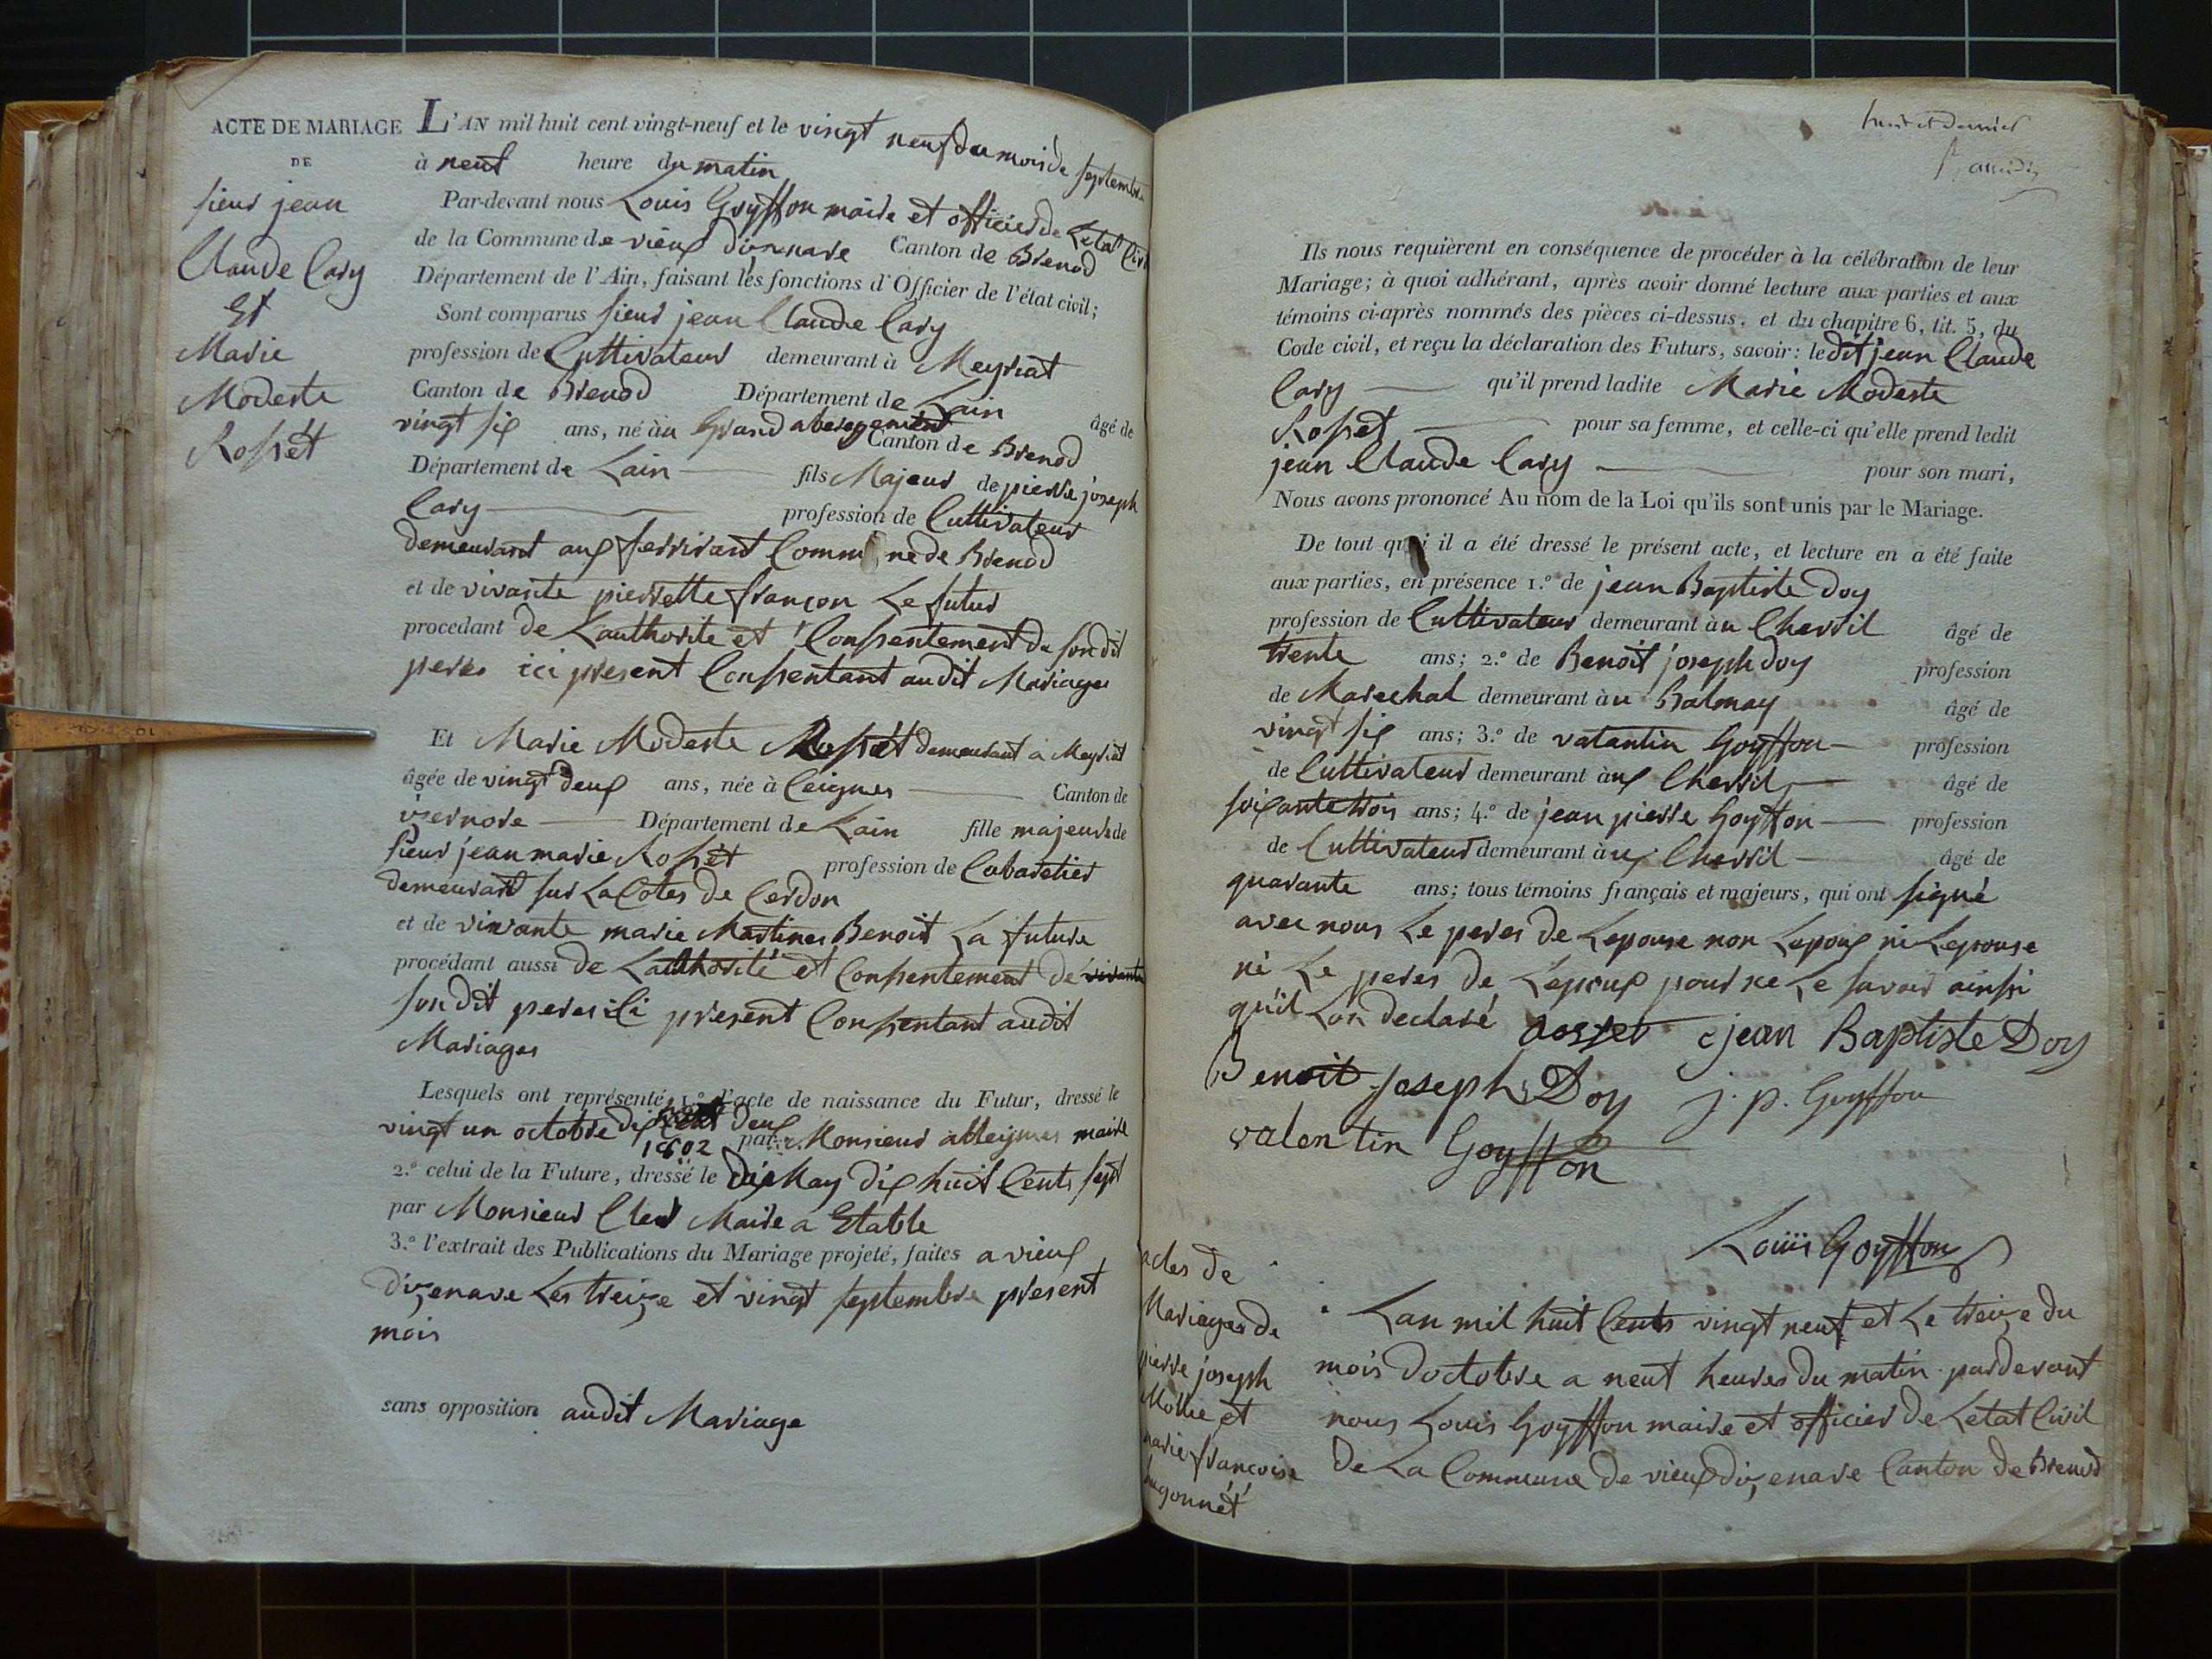 ACTE DE MARIAGE
DE
sieur jean
Claude Cary
Et
Marie
Modeste
Rosset
L'AN mil huit cent vingt-neuf et le vingt neuf du mois de septembre
à neuf heure du matin
Par-devant nous Louis Goyffon maire et officier de Letat Civil
de la Commune de vieux dizenave Canton de Brenod
Département de l'Ain, faisant les fonctions d'Officier de l'état civil;
Sont comparus sieur jean Claude Cary
profession de Cultivateur demeurant à Meyriat
Canton de Brenod Département de Lain âgé de
vingt six ans, né àu Grand abergement Canton de Brenod
Département de Lain fils Majeur de pierre joseph
Cary profession de Cultivateur
demeurant aux ferrirant Commune de Brenod
et de vivante pierrette françon Le futur
procedant de Lauthorite et Consentement de son dit
peres ici present Consentant audit Mariages
Et Marie Modeste Rosset demeurant a Meyriat
âgée de vingt deux ans, née à Ceignes Canton de
izernore Département de Lain fille majeure de
sieur jean marie Rosset profession de Cabaretier
demeurant sur La Cotes de Cerdon
et de vivante marie Martines Benoit La future
procédant aussi de Lauthorité et Consentement de vivante
son dit peres ici present Consentant audit
Mariages
Lesquels ont représenté 1.° l'acte de naissance du Futur, dressé le
vingt un octobre dix Cent deux
1802 par Monsieur alleymes maire
2.° celui de la Future, dressé le dix May dix huit Cents sept
par Monsieur Cler Maire a Etable
3.° l'extrait des Publications du Mariage projeté, faites a vieux
dizenave Les treize et vingt septembre present
mois
sans opposition audit Mariage
huit et dernier
Ils nous requièrent en conséquence de procéder à la célébration de leur
Mariage; à quoi adhérant, après avoir donné lecture aux parties et aux
témoins ci-après nommés des pièces ci-dessus, et du chapitre 6, tit. 5, du
Code civil, et reçu la déclaration des Futurs, savoir: le dit jean Claude
Cary qu'il prend ladite Marie Modeste
Rosset pour sa femme, et celle-ci qu'elle prend ledit
jean Claude Cary pour son mari,
Nous avons prononcé Au nom de la Loi qu'ils sont unis par le Mariage.
De tout quoi il a été dressé le présent acte, et lecture en a été faite
aux parties, en présence 1.° de jean Baptiste Doy
profession de Cultivateur demeurant àu Cherril âgé de
trente ans; 2.° de Benoit joseph doy profession
de Marechal demeurant àu Balmay âgé de
vingt six ans; 3.° de valantin Goyffon profession
de Cultivateur demeurant àux Cherril âgé de
soixante trois ans; 4.° de jean pierre Goyffon profession
de Cultivateur demeurant àux Cherril âgé de
quarante ans; tous témoins français et majeurs, qui ont signé
avec nous Le peres de Lepouse non Lepoux ni Lepouse
ni Le peres de Lepoux pour ne Le savoir ainsi
quil Lon declaré Rosset jean Baptiste Doy
Benoit joseph Doy j. p. Goyffon
valentin Goyffon
Louis Goyffon
actes de
Mariages de
pierre joseph
Mollie et
marie françoise
hugonnét
Lan mil huit Cents vingt neuf et Le treize du
mois doctobre a neuf heures du matin pardevant
nous Louis Goyffon maire et officier de Letat Civil
de La Commune de vieux dizenave Canton de Brenod